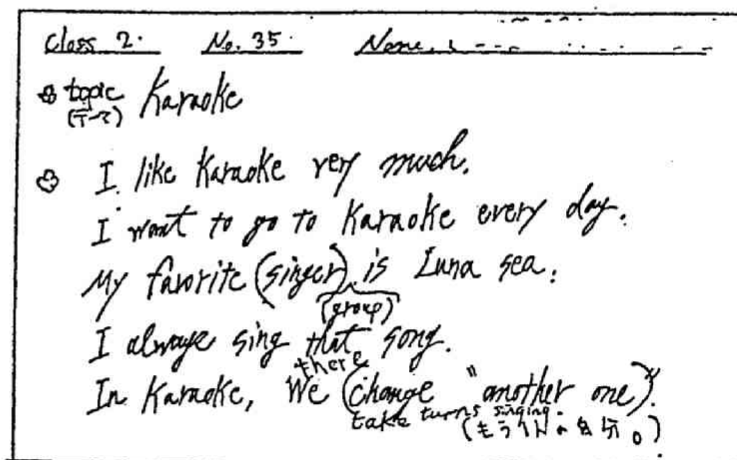 Class 2. No. 35 Name
topic Karaoke
(テーマ)
I like Karaoke very much.
I want to go to Karaoke every day.
My favorite (singer) is Luna sea.
(group)
I always sing that song.
there
In Karaoke, We (change "another one)".
take turns singing.
(もう1人の自分。)